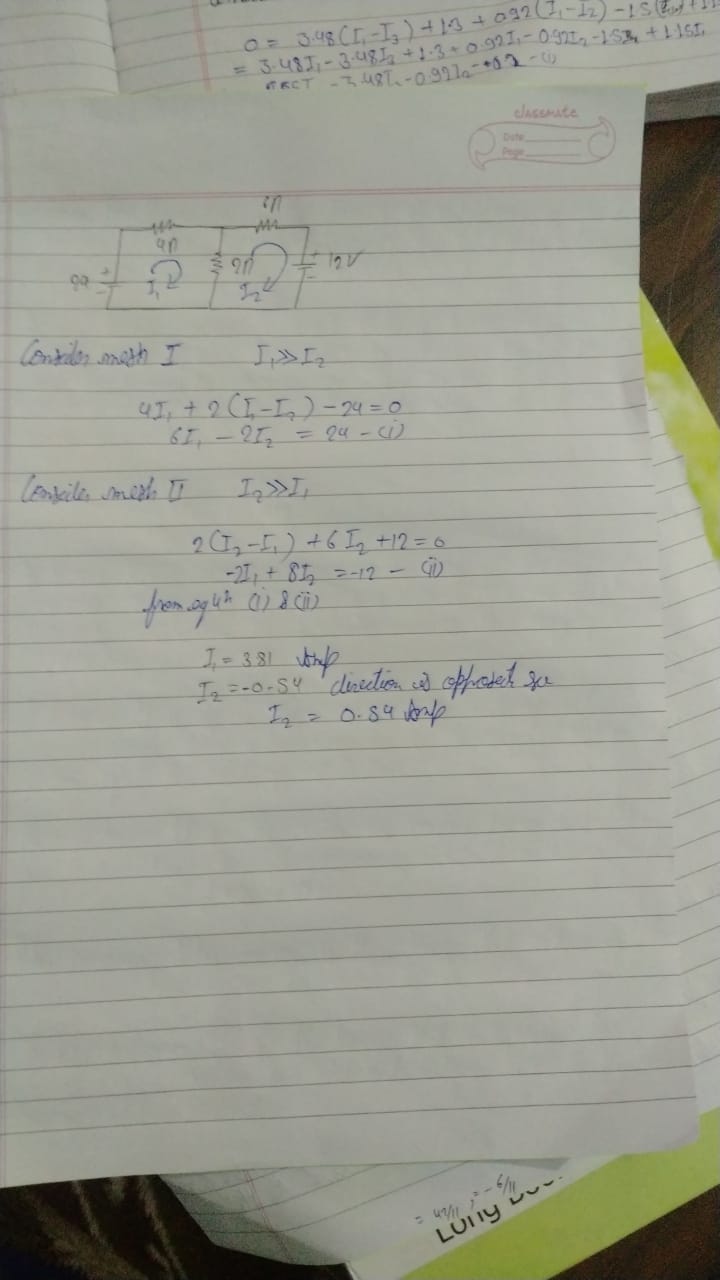 0 = 3.48(I₁-I₃) + 1.3 + 0.92(I₁-I₂) -1.5
= 3.48I₁ - 3.48I₃ + 1.3 + 0.92I₁ - 0.92I₂ -1.5 + 1.15I₁
classmate
Date
Page
6Ω
4Ω
2Ω
12V
24
I₁
I₂
Consider mesh I I₁>>I₂
4I₁ + 2(I₁-I₂) - 24 = 0
6I₁ - 2I₂ = 24 - (i)
Consider mesh II I₂>>I₁
2(I₂-I₁) + 6I₂ + 12 = 0
-2I₁ + 8I₂ = -12 - (ii)
from eqⁿ (i) & (ii)
I₁ = 3.81 Amp
I₂ = -0.54 direction is opposet so
I₂ = 0.54 Amp